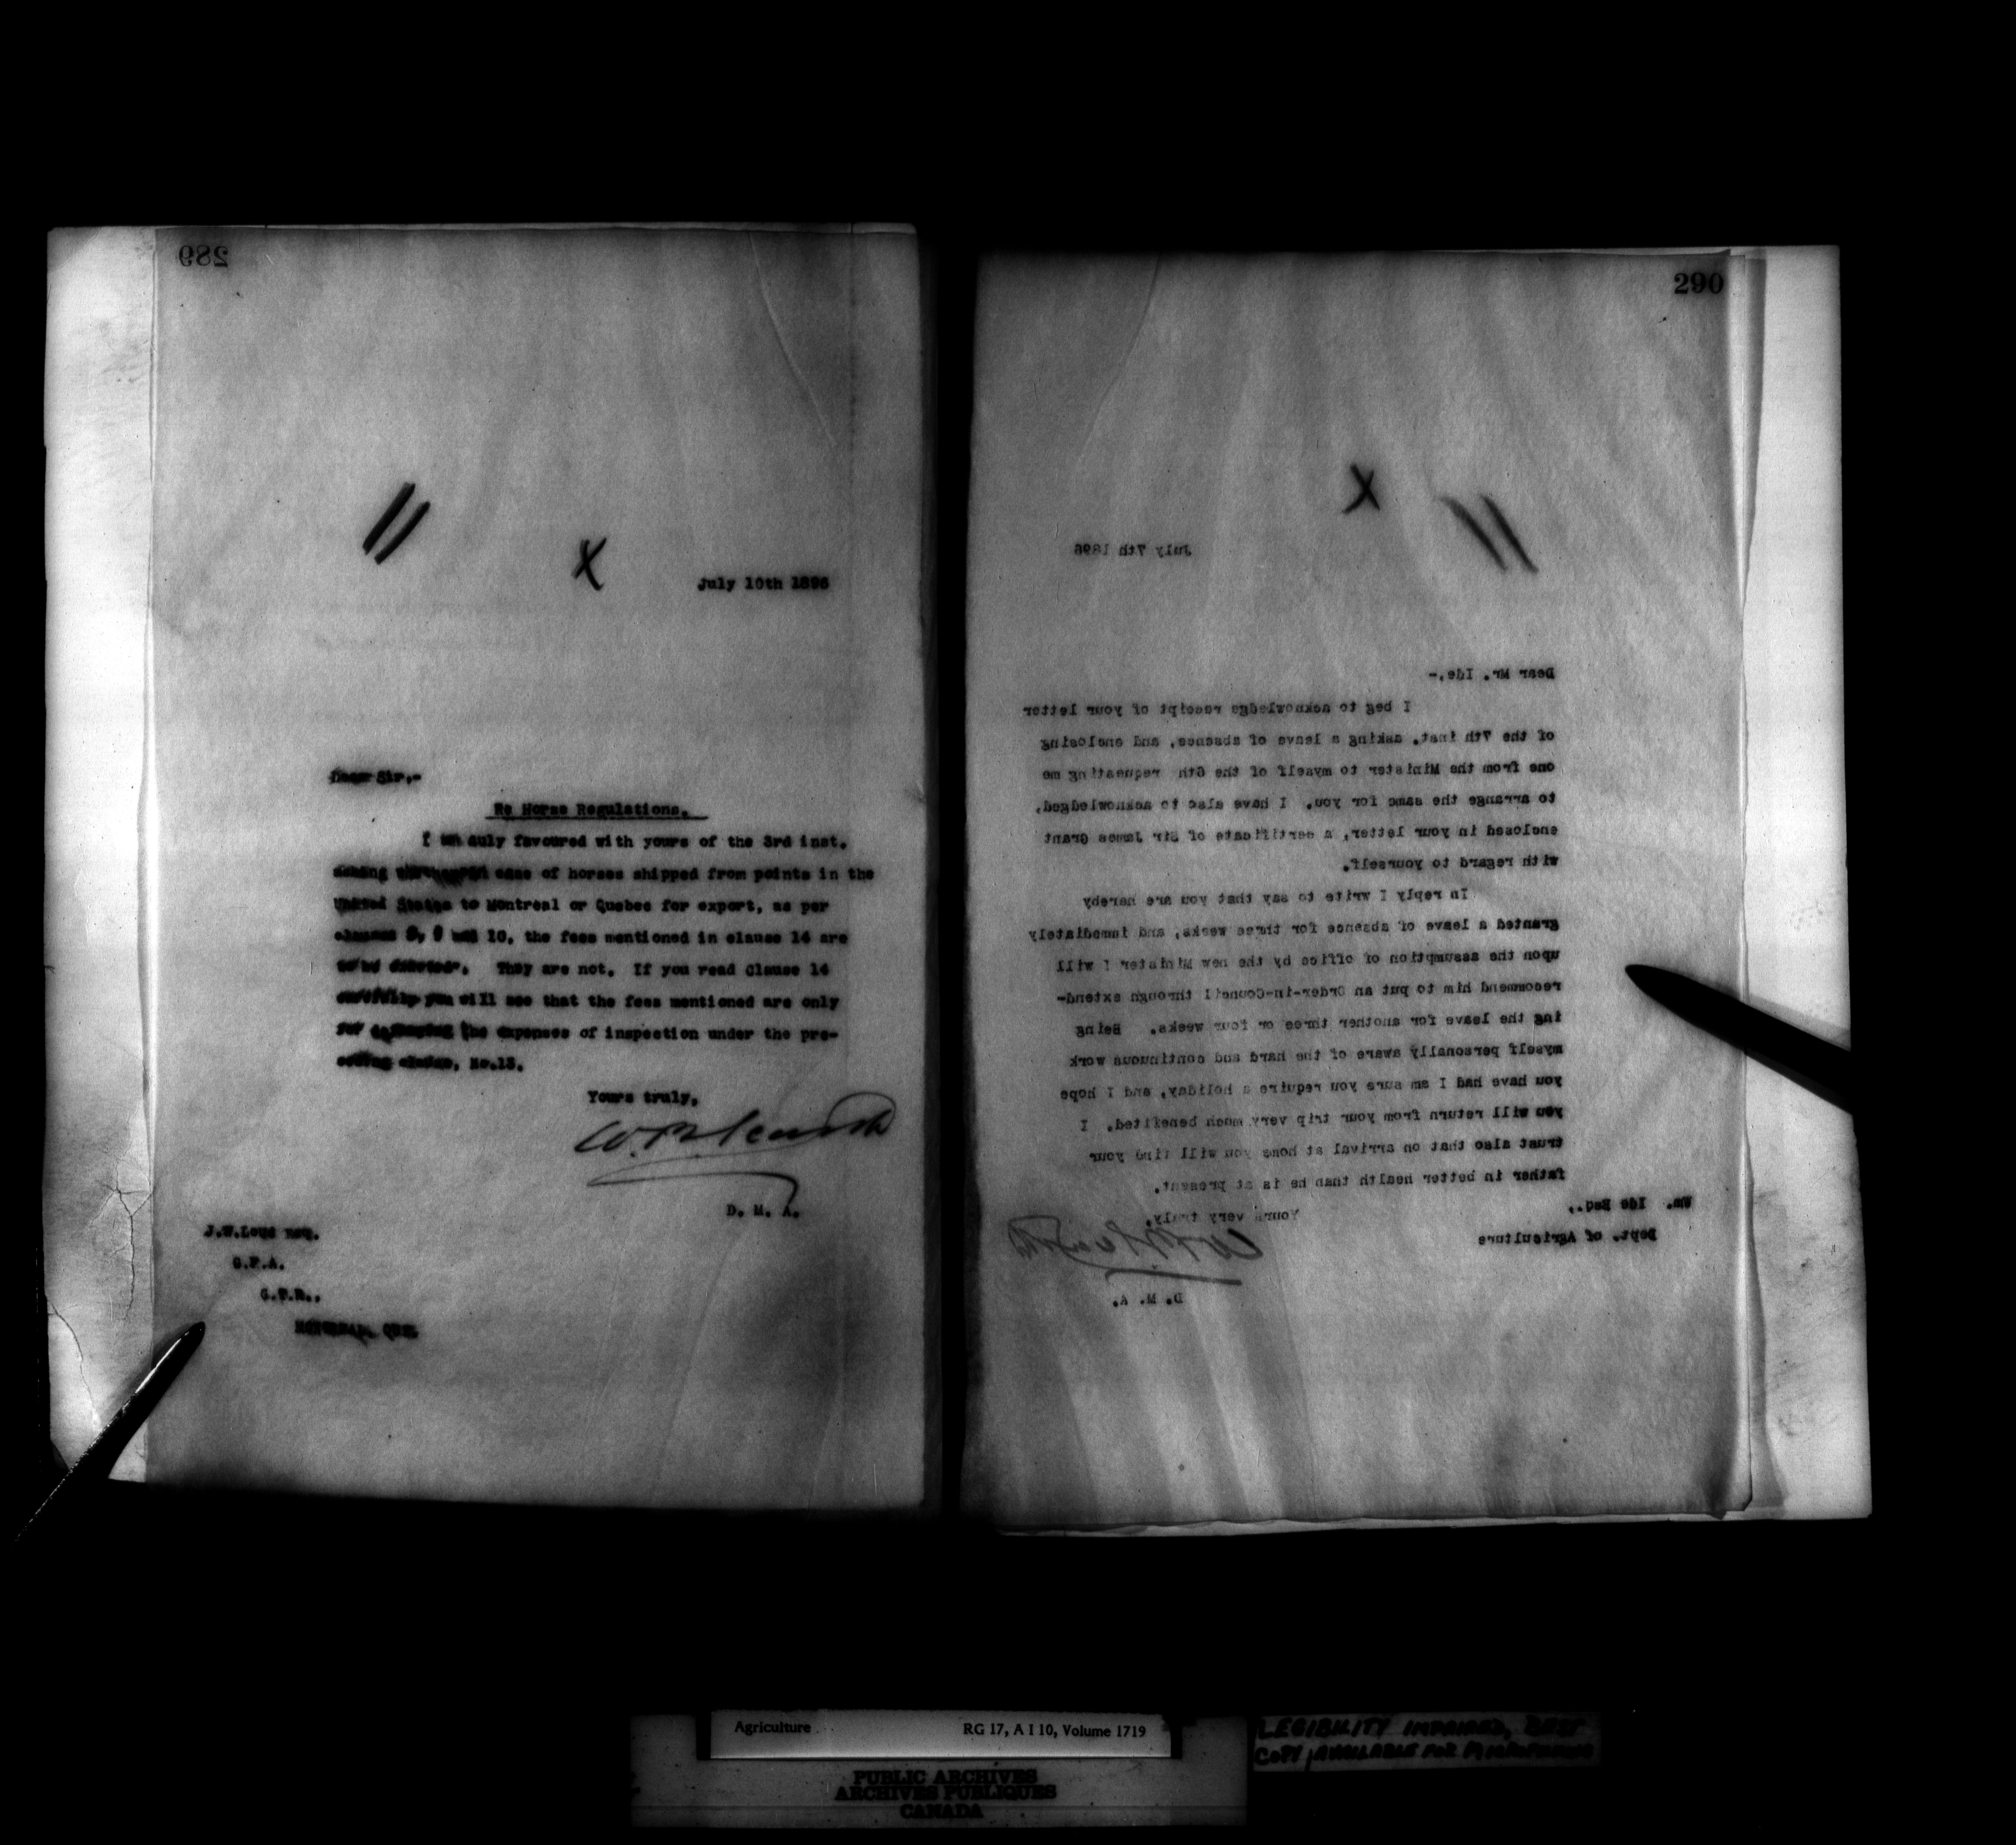 289
July 10th 1896
Dear Sir,-
Re Horse Regulations.
I am duly favoured with yours of the 3rd inst.
asking case of horses shipped from points in the
United States to Montreal or Quebec for export, as per
clauses 9, and 10, the fees mentioned in clause 14 are
to be They are not. If you read Clause 14
carefully you will see that the fees mentioned are only
for the expenses of inspection under the pre-
ceding clause, No.13.
Yours truly,
D. M. A.
J.W.Loud Esq.
G.F.A.
G.T.R.,
MONTREAL, QUE.
290
July 7th 1896
Dear Mr. Ide,-
I beg to acknowledge receipt of your letter
of the 7th inst. asking a leave of absence, and enclosing
one from the Minister to myself of the 6th requesting me
to arrange the same for you. I have also to acknowledged,
enclosed in your letter, a certificate of Sir James Grant
with regard to yourself.
In reply I write to say that you are hereby
granted a leave of absence for three weeks, and immediately
upon the assumption of office by the new Minister I will
recommend him to put an Order-in-Council through extend-
ing the leave for another three or four weeks. Being
myself personally aware of the hard and continuous work
you have had I am sure you require a holiday, and I hope
you will return from your trip very much benefited. I
trust also that on arrival at home you will find your
father in better health than he is at present.
Yours very truly,
Wm. Ide Esq.,
Dept. of Agriculture
D. M. A.
Agriculture RG 17, A I 10, Volume 1719
PUBLIC ARCHIVES
ARCHIVES PUBLIQUES
CANADA
LEGIBILITY IMPAIRED, BEST
COPY AVAILABLE FOR MICROFILMING